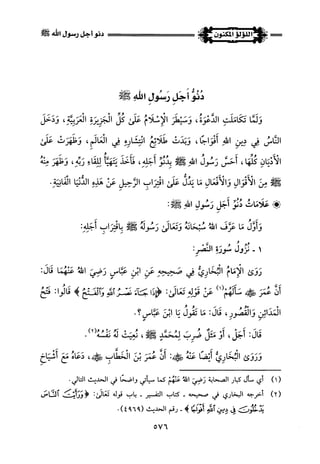 اللؤلؤ المكنون
دنو أجل رسول الله ﷺ
دُنُوُّ أَجَلِ رَسُولِ اللهِ ﷺ
وَلَمَّا تَكَامَلَتِ الدَّعْوَةُ، وَسَيْطَرَ الْإِسْلَامُ عَلَى كُلِّ الْجَزِيرَةِ الْعَرَبِيَّةِ، وَدَخَلَ
النَّاسُ فِي دِينِ اللهِ أَفْوَاجًا، وَبَدَتْ طَلَائِعُ انْتِشَارِهِ فِي الْعَالَمِ، وَظَهَرَتْ عَلَى
الْأَدْيَانِ كُلِّهَا، أَحَسَّ رَسُولُ اللهِ ﷺ بِدُنُوِّ أَجَلِهِ، فَأَخَذَ يَتَهَيَّأُ لِلِقَاءِ رَبِّهِ، وَظَهَرَ مِنْهُ
ﷺ مِنَ الْأَقْوَالِ وَالْأَفْعَالِ مَا يَدُلُّ عَلَى اقْتِرَابِ الرَّحِيلِ عَنْ هَذِهِ الدُّنْيَا الْفَانِيَةِ.
عَلَامَاتُ دُنُوِّ أَجَلِ رَسُولِ اللهِ ﷺ:
وَأَوَّلُ مَا عَرَّفَ اللهُ سُبْحَانَهُ وَتَعَالَى رَسُولَهُ ﷺ بِاقْتِرَابِ أَجَلِهِ:
١ - نُزُولُ سُورَةِ النَّصْرِ:
رَوَى الْإِمَامُ الْبُخَارِيُّ فِي صَحِيحِهِ عَنِ ابْنِ عَبَّاسٍ رَضِيَ اللهُ عَنْهُمَا قَالَ:
أَنَّ عُمَرَ ﷺ سَأَلَهُمْ(١) عَنْ قَوْلِهِ تَعَالَى: ﴿إِذَا جَاءَ نَصْرُ اللهِ وَالْفَتْحُ﴾ قَالُوا: فَتْحُ
الْمَدَائِنِ وَالْقُصُورِ، قَالَ: مَا تَقُولُ يَا ابْنَ عَبَّاسٍ؟.
قَالَ: أَجَلٌ، أَوْ مَثَلٌ ضُرِبَ لِمُحَمَّدٍ ﷺ، نُعِيَتْ لَهُ نَفْسُهُ(٢).
وَرَوَى الْبُخَارِيُّ أَيْضًا عَنْهُ ﷺ: أَنَّ عُمَرَ بْنَ الْخَطَّابِ ﷺ، دَعَاهُ مَعَ أَشْيَاخِ
(١) أي سأل كبار الصحابة رَضِيَ اللهُ عَنْهُمْ كما سيأتي واضحًا في الحديث التالي.
(٢) أخرجه البخاري في صحيحه - كتاب التفسير - باب قوله تَعَالَى: ﴿وَرَأَيْتَ النَّاسَ
يَدْخُلُونَ فِي دِينِ اللهِ أَفْوَاجًا﴾ - رقم الحديث (٤٩٦٩).
٥٧٦